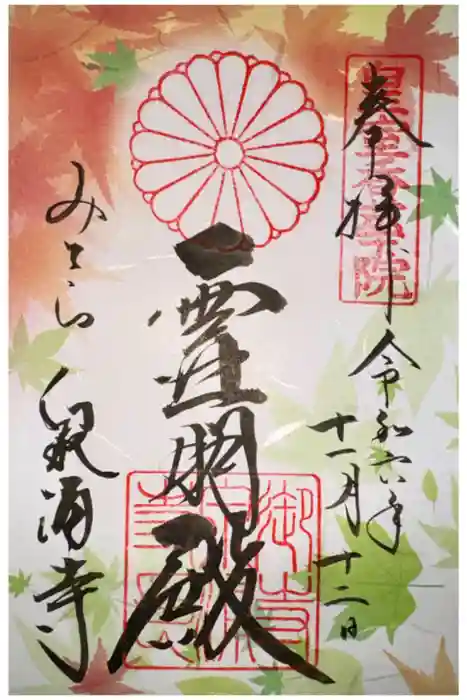 奉拝
令和六年
十一月十二日
皇室香華院
霊明殿
みてら
泉涌寺